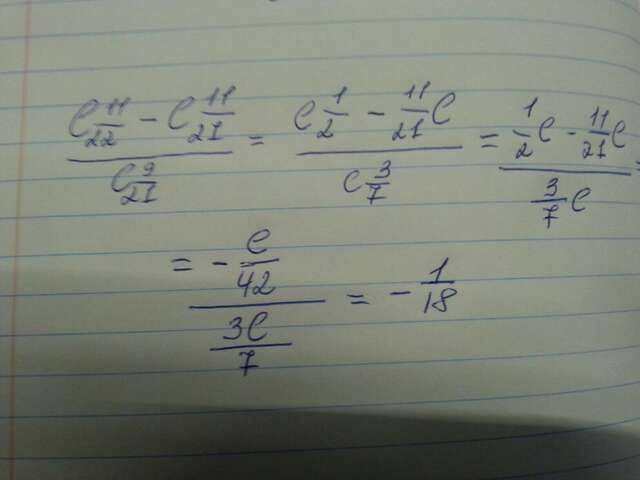 (C 11/22 - C 11/21) / (C 9/21) = (C 1/2 - 11/21 C) / (C 3/7) = (1/2 C - 11/21 C) / (3/7 C) =
= (- C/42) / (3C/7) = - 1/18